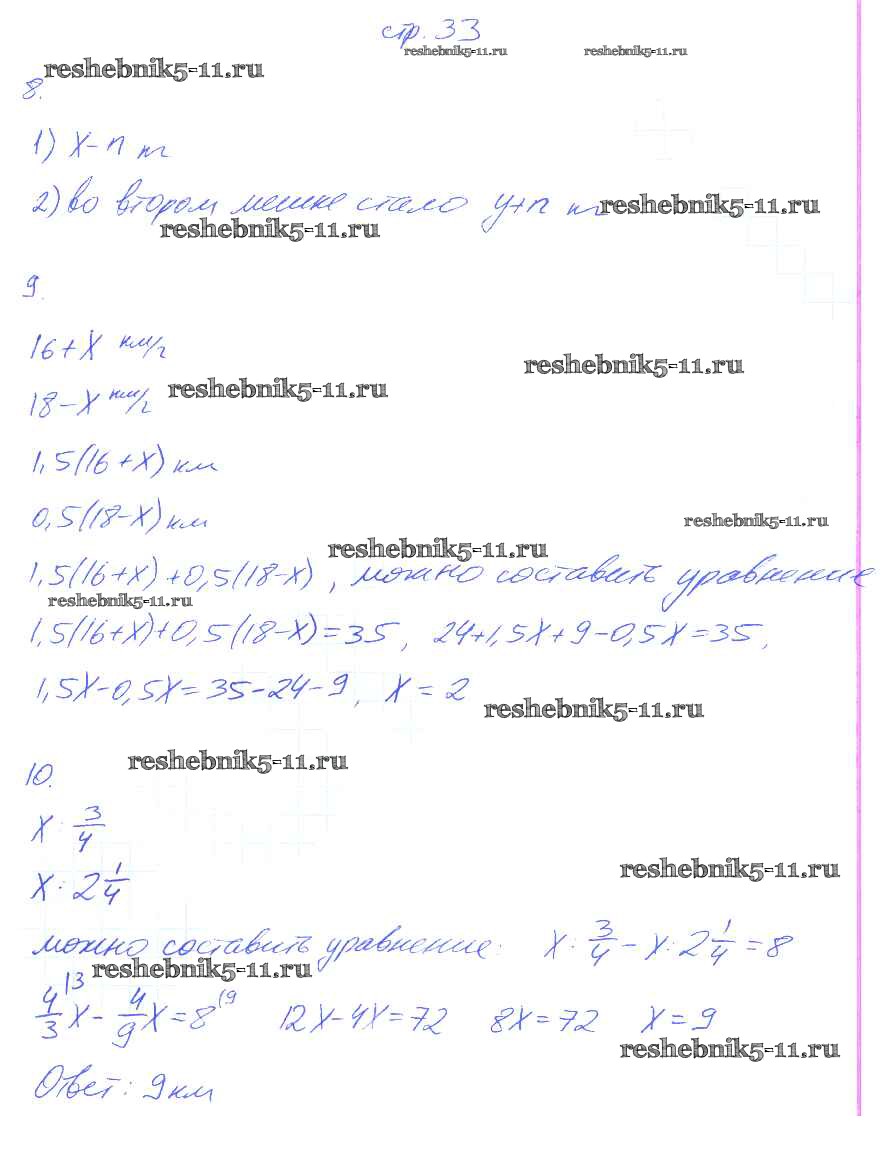 стр. 33
reshebnik5-11.ru reshebnik5-11.ru
reshebnik5-11.ru
8.
1) x-n кг
2) во втором мешке стало y+n кг reshebnik5-11.ru
reshebnik5-11.ru
9.
16+x км/ч
reshebnik5-11.ru
18-x км/ч reshebnik5-11.ru
1,5(16+x) км
0,5(18-x) км
reshebnik5-11.ru
reshebnik5-11.ru
1,5(16+x)+0,5(18-x), можно составить уравнение
reshebnik5-11.ru
1,5(16+x)+0,5(18-x)=35, 24+1,5x+9-0,5x=35,
1,5x-0,5x=35-24-9, x=2
reshebnik5-11.ru
reshebnik5-11.ru
10.
x : 3/4
reshebnik5-11.ru
x : 2 1/4
можно составить уравнение: x : 3/4 - x : 2 1/4 = 8
reshebnik5-11.ru
4/3 |3 x - 4/9 x = 8 |9 12x-4x=72 8x=72 x=9
reshebnik5-11.ru
Ответ: 9 км